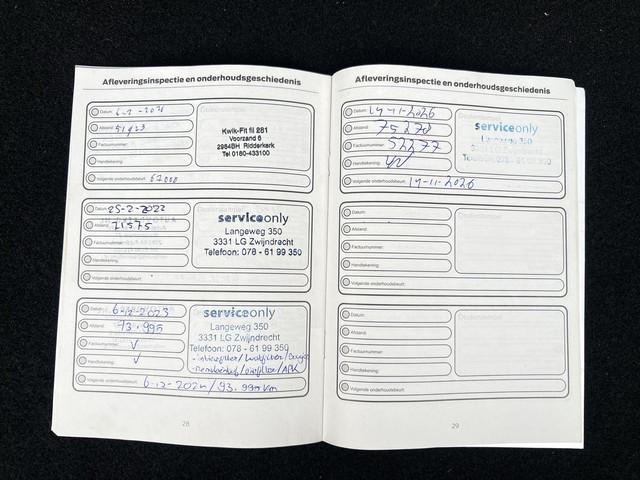 Afleveringsinspectie en onderhoudsgeschiedenis
Datum:
Afstand:
Factuurnummer:
Handtekening:
Volgende onderhoudsbeurt:
Kwik-Fit fil 281
Voorzand 6
2984BH Ridderkerk
Tel 0180-433100
Datum: 25-2-2022
Afstand: 71575
Factuurnummer:
Handtekening:
Volgende onderhoudsbeurt:
serviceonly
Langeweg 350
3331 LG Zwijndrecht
Telefoon: 078 - 61 99 350
Datum: 6-12-2023
Afstand: 93.995
Factuurnummer: √
Handtekening: √
Volgende onderhoudsbeurt: 6-12-2024/93.995 km
serviceonly
Langeweg 350
3331 LG Zwijndrecht
Telefoon: 078 - 61 99 350
28
Afleveringsinspectie en onderhoudsgeschiedenis
Datum:
Afstand: 75278
Factuurnummer: 52277
Handtekening:
Volgende onderhoudsbeurt: 19-11-2026
serviceonly
Datum:
Afstand:
Factuurnummer:
Handtekening:
Volgende onderhoudsbeurt:
Datum:
Afstand:
Factuurnummer:
Handtekening:
Volgende onderhoudsbeurt:
29